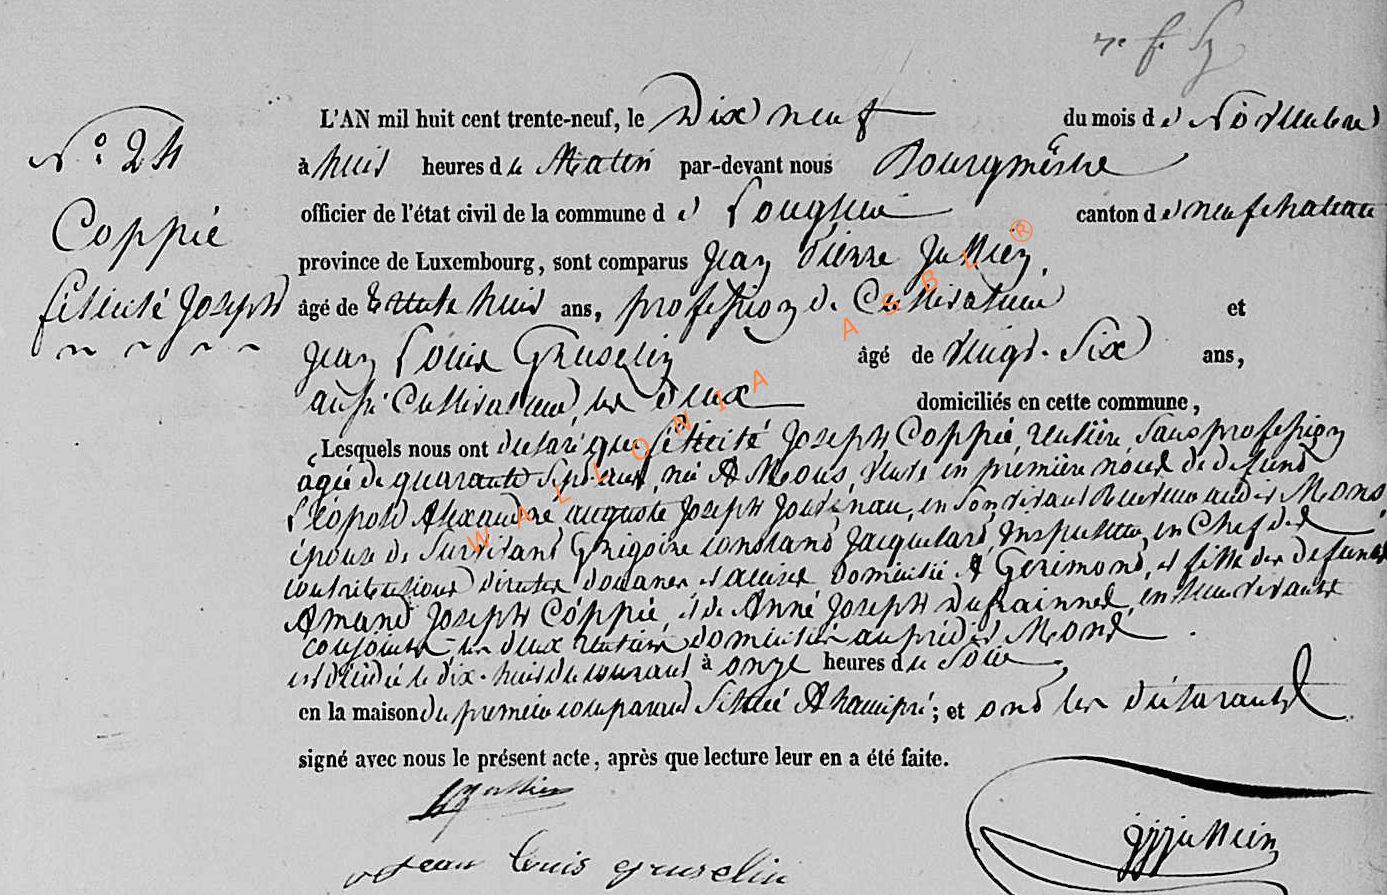 L'AN mil huit cent trente-neuf, le Dix neuf du mois de Novembre
N° 24
à huit heures de Matin par-devant nous Bourgmestre
officier de l'état civil de la commune de Longlier canton de neufchateau
Coppié
province de Luxembourg, sont comparus Jean Pierre Jullien,
félicité Joseph
âgé de trente huit ans, profession de Cultivateur et
Jean Louis Gruselin âgé de vingt-six ans,
aussi Cultivateur, les deux domiciliés en cette commune,
Lesquels nous ont déclaré que félicité Joseph Coppié, rentière, sans profession
âgée de quarante sept ans, née A Mons, veuve en première noces de defunt
Léopold Alexandre auguste Joseph en son vivant Receveur Mons,
épouse de survivant Grégoire constant Jacquelart, Inspecteur en Chef des
contributions directes douanes et accises domicilié A Gérimont, et fille des defunts
Amand Joseph Coppié, et de Anne Joseph en leur vivants
conjoints les deux rentiers domiciliés au prédit Mons
est décédée le dix-huit du courant à onze heures de Soir
en la maison du premier comparant située A hamipré; et ont les déclarants
signé avec nous le présent acte, après que lecture leur en a été faite.
Jean Louis gruselin
jpjullien
WALLONIA ASBL ®